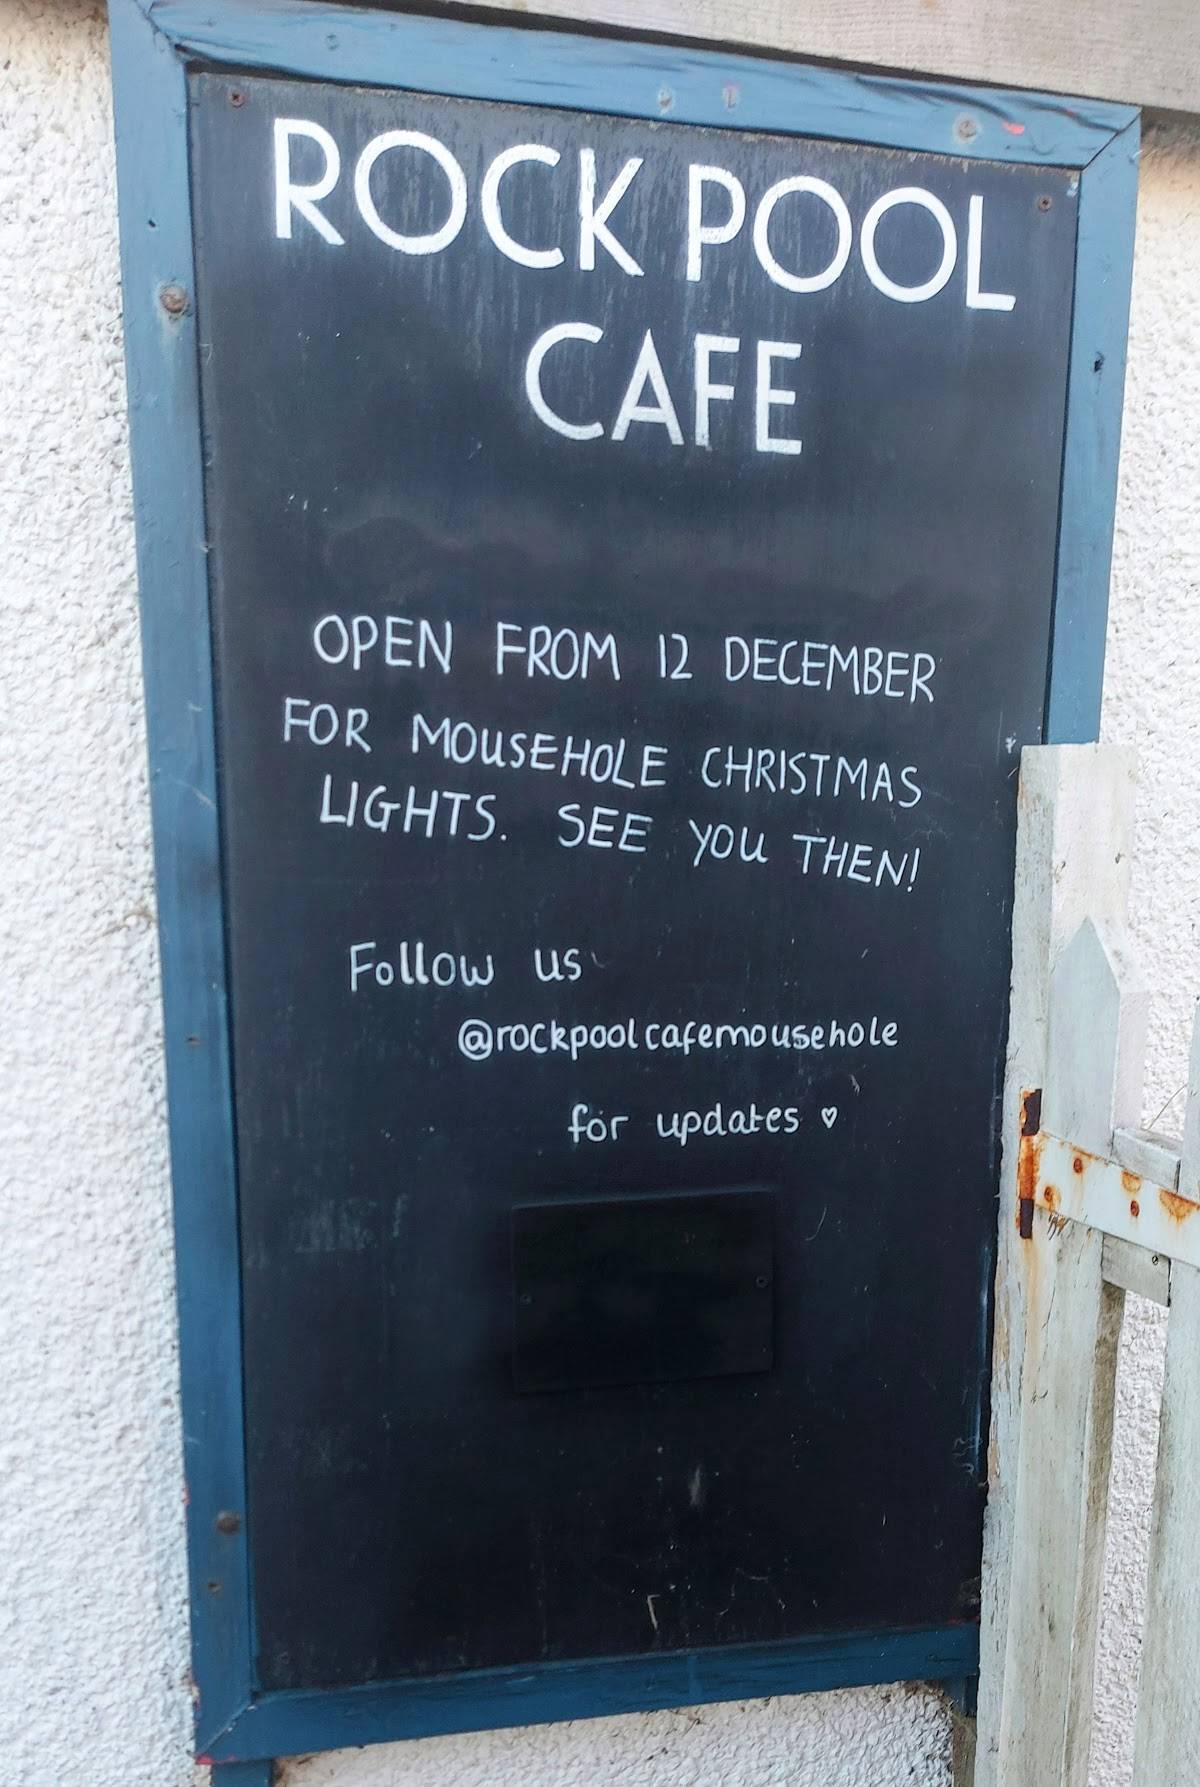 ROCK POOL
CAFE
OPEN FROM 12 DECEMBER
FOR MOUSEHOLE CHRISTMAS
LIGHTS. SEE YOU THEN!
Follow us
@rockpoolcafemousehole
for updates ♡